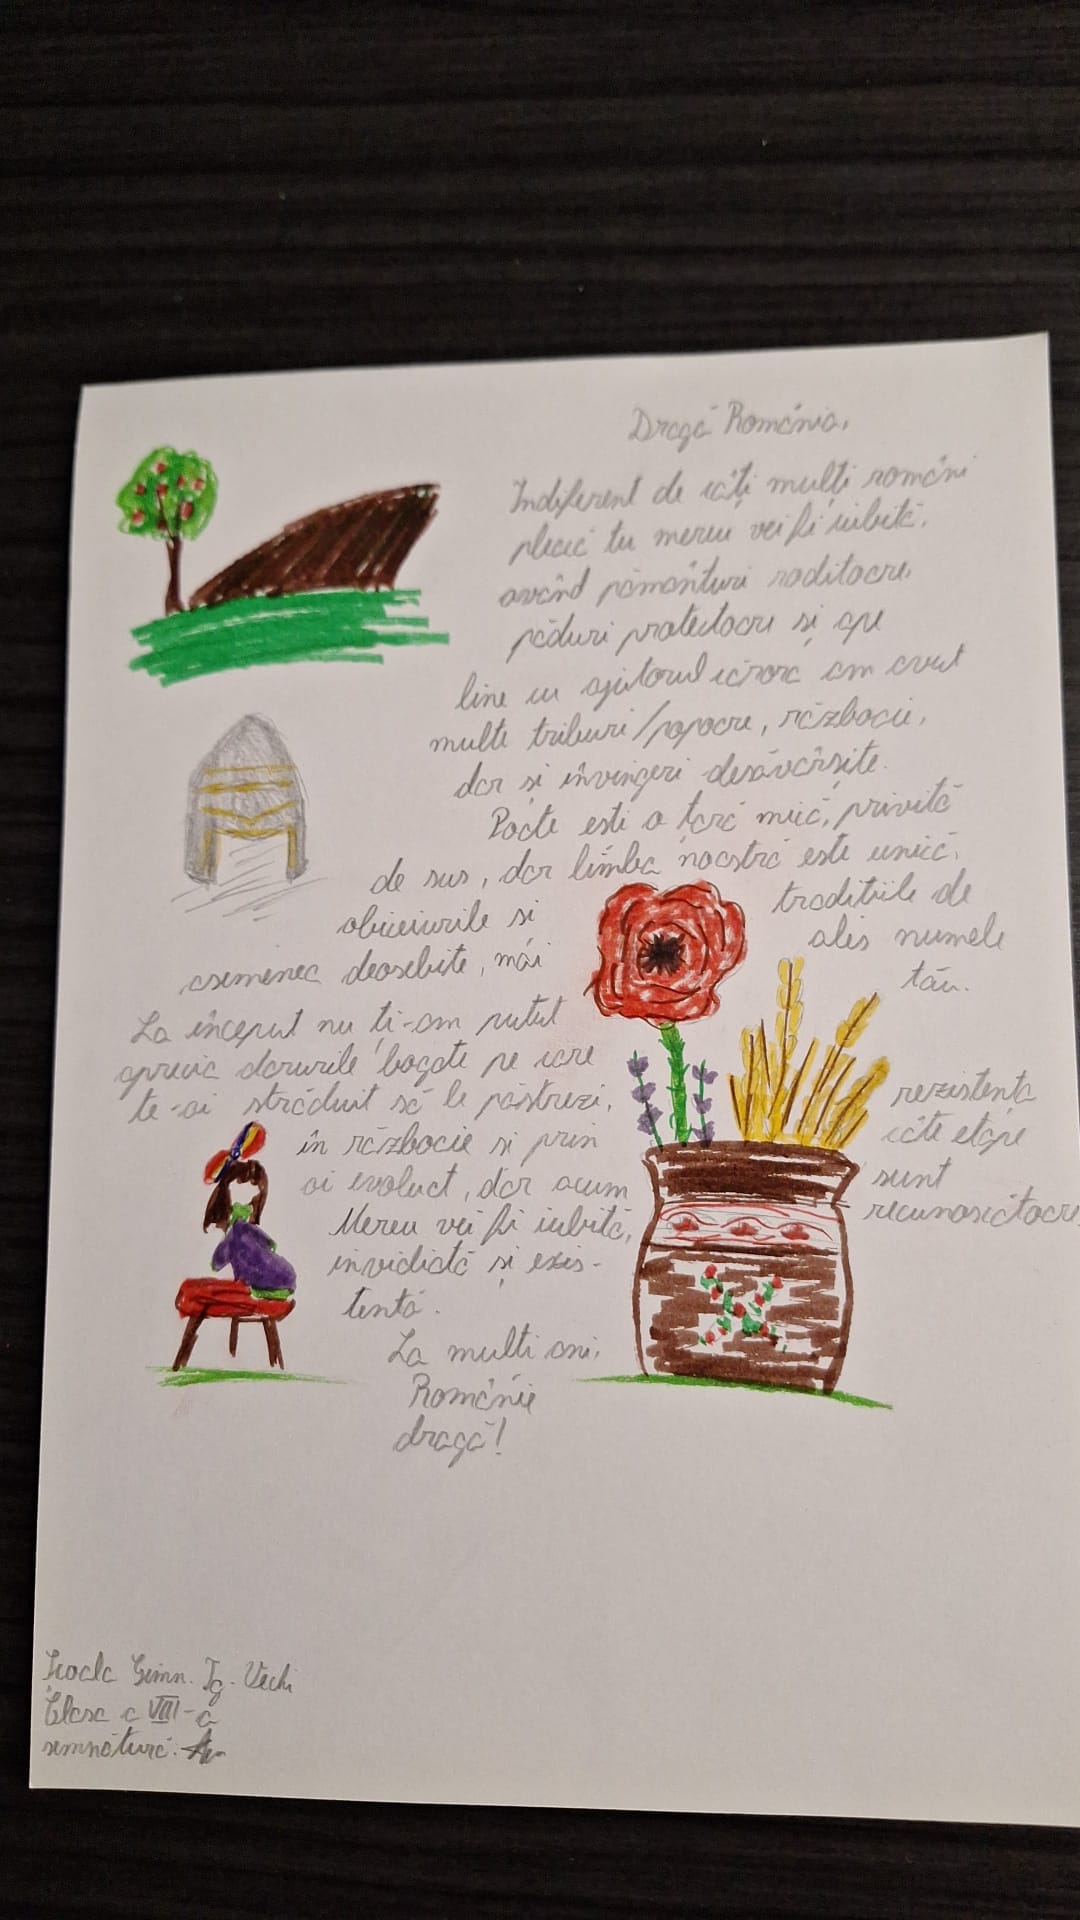 Dragă România,
Indiferent de câți mulți români
pleacă tu mereu vei fi iubită,
având pământuri roditoare,
păduri protectoare și ape
line cu ajutorul căroră am avut
multe triburi/popoare, războaie,
dar și învingeri desăvârșite.
Poate ești o țară mică, privită
de sus, dar limba noastră este unică,
obiceiurile si tradițiile de
asemenea deosebite, mai ales numele
tău.
La început nu ți-am putut
aprecia darurile bogate pe care
te-ai străduit să le păstrezi, rezistența
în războaie si prin câte etape
ai evoluat, dar acum sunt
recunoscătoare
Mereu vei fi iubită,
invidiată și exis-
tentă.
La multi ani,
Românie
dragă!
Școala Gimn. Tg. Vechi
Clasa a VIII-a
semnătură.